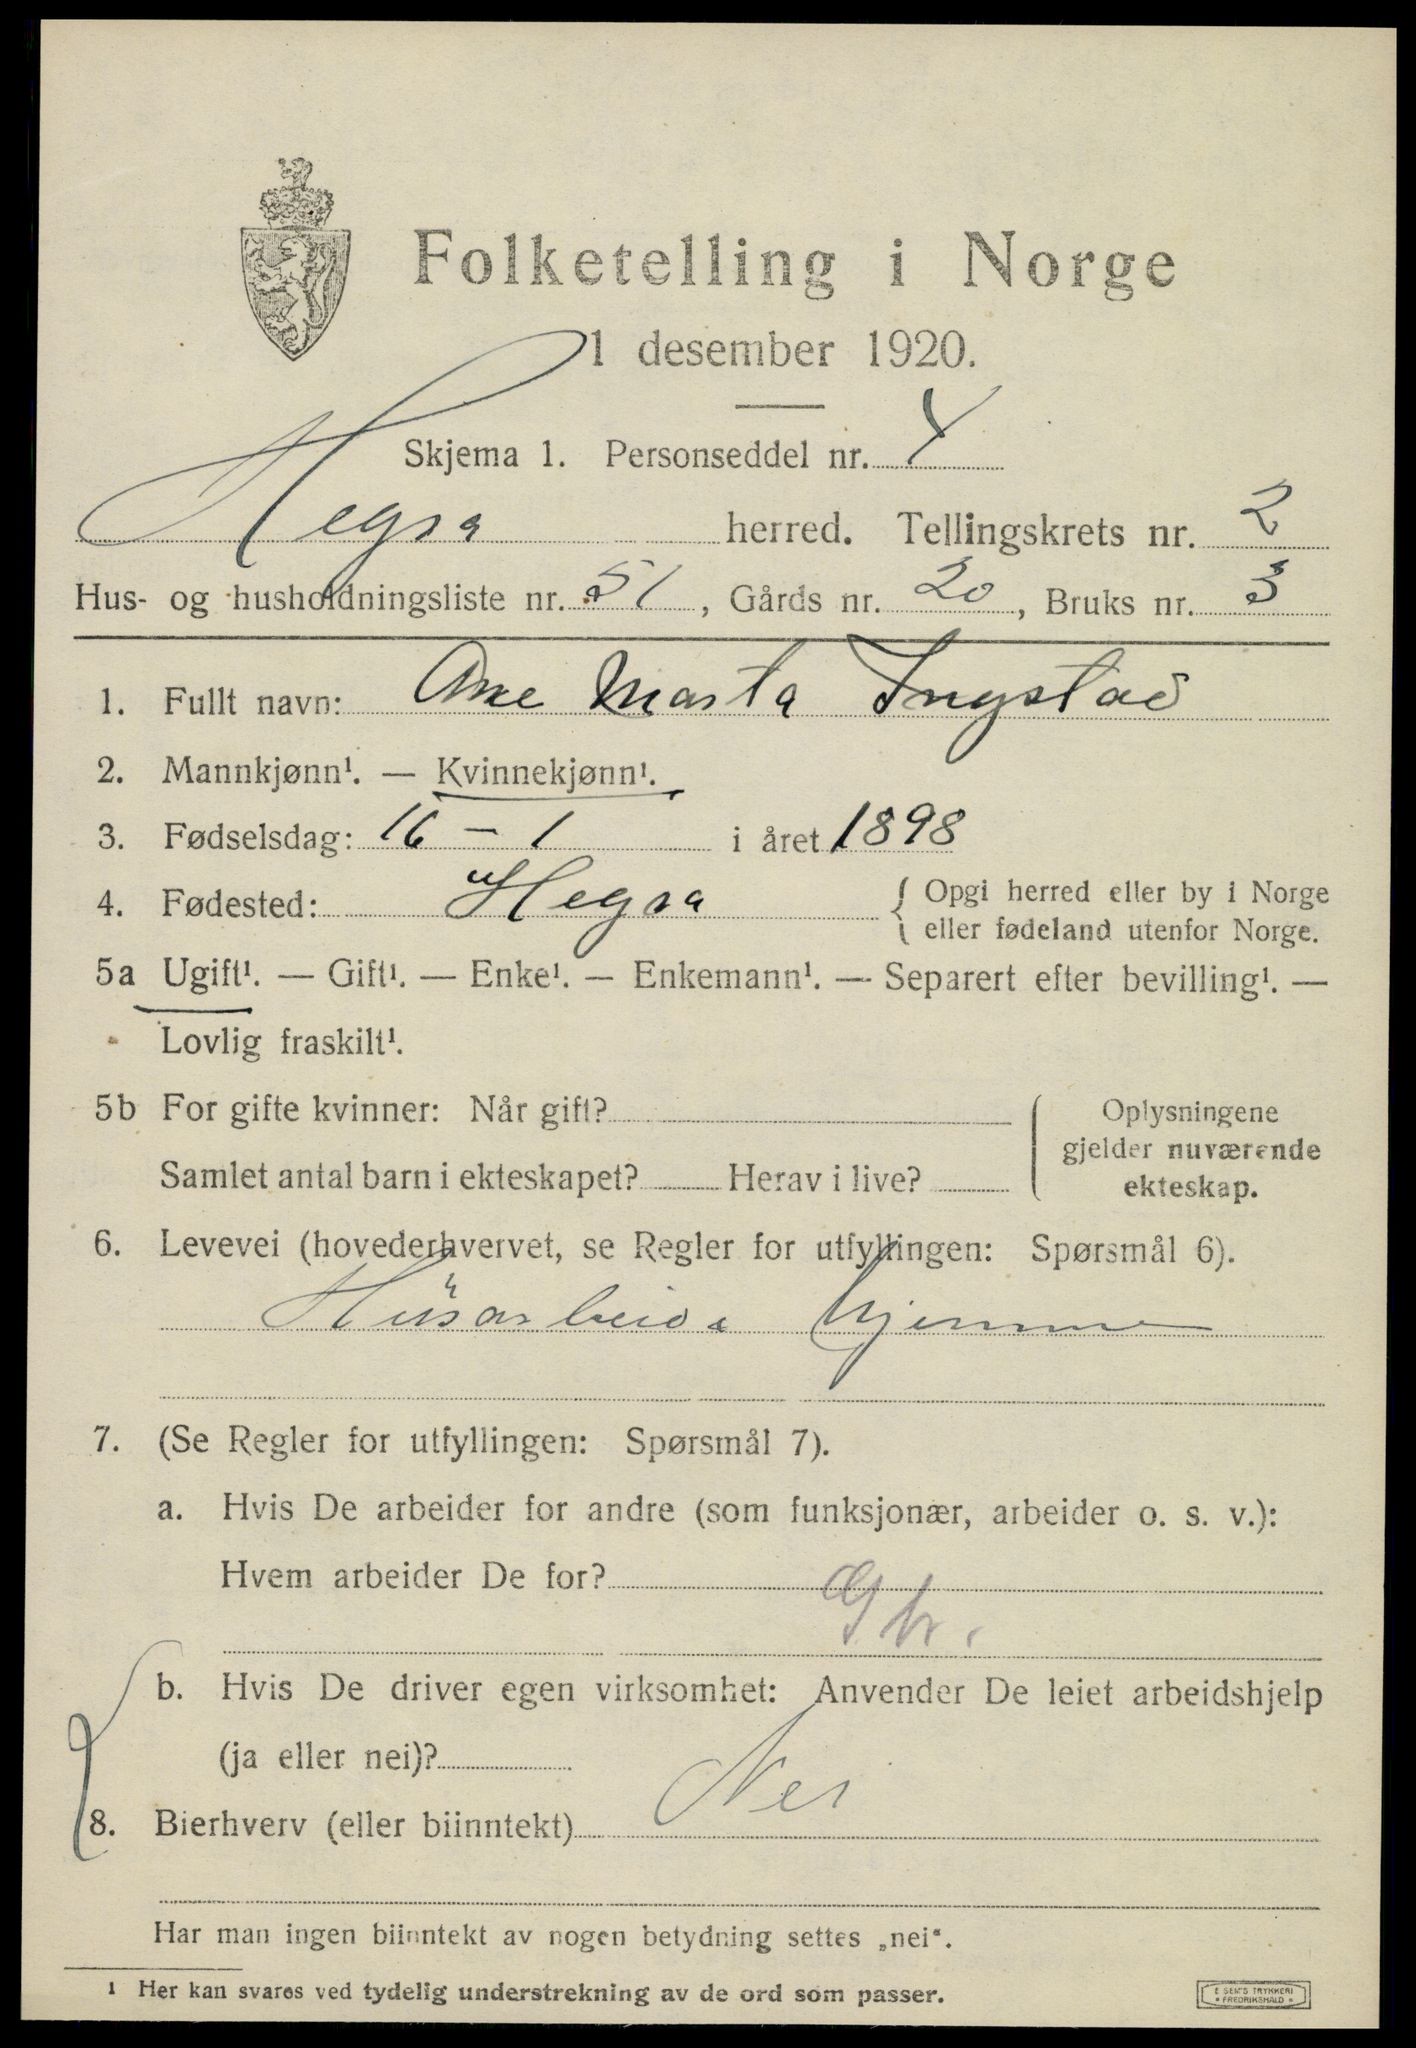 Folketelling i Norge
1 desember 1920.
Skjema 1. Personseddel nr. 4
Hegra herred. Tellingskrets nr. 2
Hus- og husholdningsliste nr. 51, Gårds nr. 20, Bruks nr. 3
1. Fullt navn: Ane Marta Ingstad
2. Mannkjønn¹. — Kvinnekjønn¹.
3. Fødselsdag: 16 - 1 i året 1898
4. Fødested: Hegra { Opgi herred eller by i Norge
eller fødeland utenfor Norge.
5a Ugift¹. — Gift¹. — Enke¹. — Enkemann¹. — Separert efter bevilling¹. —
Lovlig fraskilt¹.
5b For gifte kvinner: Når gift? Oplysningene
gjelder nuværende
Samlet antal barn i ekteskapet? Herav i live? ekteskap.
6. Levevei (hovederhvervet, se Regler for utfyllingen: Spørsmål 6).
Husarbeide hjemme
7. (Se Regler for utfyllingen: Spørsmål 7).
a. Hvis De arbeider for andre (som funksjonær, arbeider o. s. v.):
Hvem arbeider De for?
b. Hvis De driver egen virksomhet: Anvender De leiet arbeidshjelp
(ja eller nei)?
8. Bierhverv (eller biinntekt) Nei
Har man ingen biinntekt av nogen betydning settes „nei“.
1 Her kan svares ved tydelig understrekning av de ord som passer.
E SEM'S TRYKKERI
• FREDRIKSHALD •